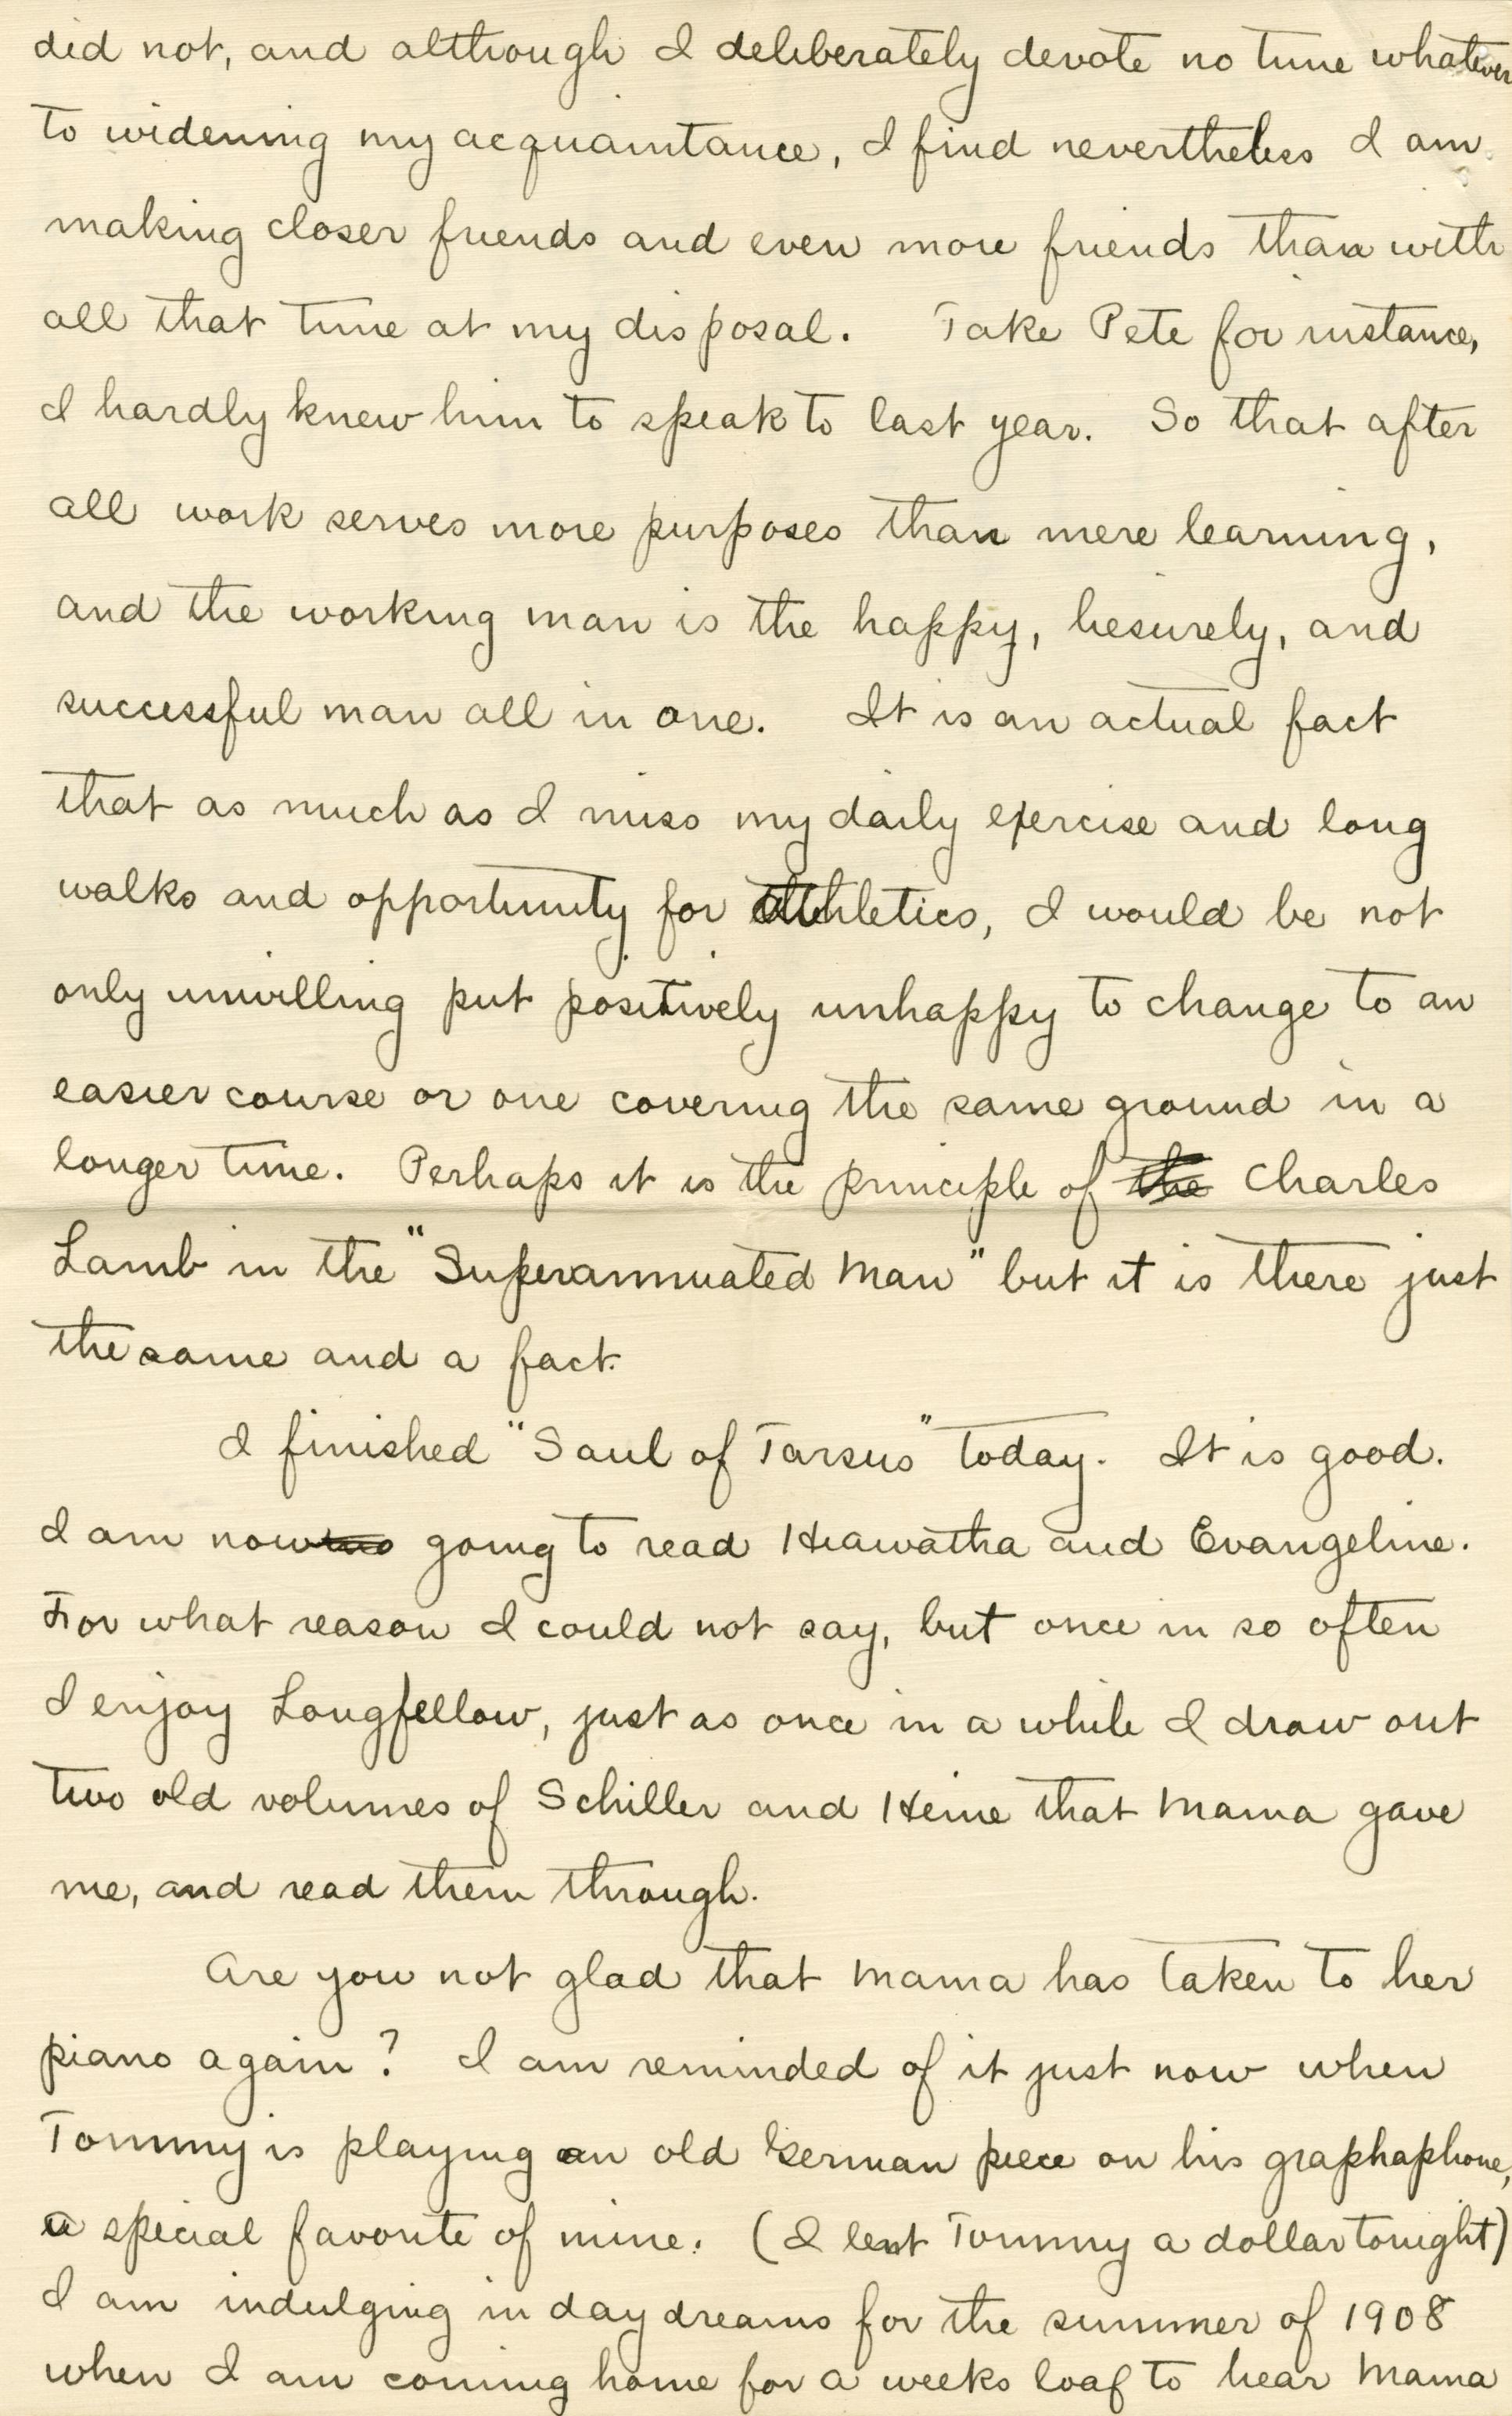 did not, and although I deliberately devote no time whatever
to widening my acquaintance, I find nevertheless I am
making closer friends and even more friends than with
all that time at my disposal. Take Pete for instance,
I hardly knew him to speak to last year. So that after
all work serves more purposes than mere learning,
and the working man is the happy, liesurely, and
successful man all in one. It is an actual fact
that as much as I miss my daily exercise and long
walks and opportunity for athletics, I would be not
only unwilling put positively unhappy to change to an
easier course or one covering the same ground in a
longer time. Perhaps it is the principle of the Charles
Lamb in the "Superannuated Man" but it is there just
the same and a fact.
I finished "Saul of Tarsus" today. It is good.
I am now going to read Hiawatha and Evangeline.
For what reason I could not say, but once in so often
I enjoy Longfellow, just as once in a while I draw out
two old volumes of Schiller and Heine that Mama gave
me, and read them through.
Are you not glad that Mama has taken to her
piano again? I am reminded of it just now when
Tommy is playing an old German piece on his graphaphone,
a special favorite of mine. (I lent Tommy a dollar tonight)
I am indulging in day dreams for the summer of 1908
when I am coming home for a weeks loaf to hear Mama